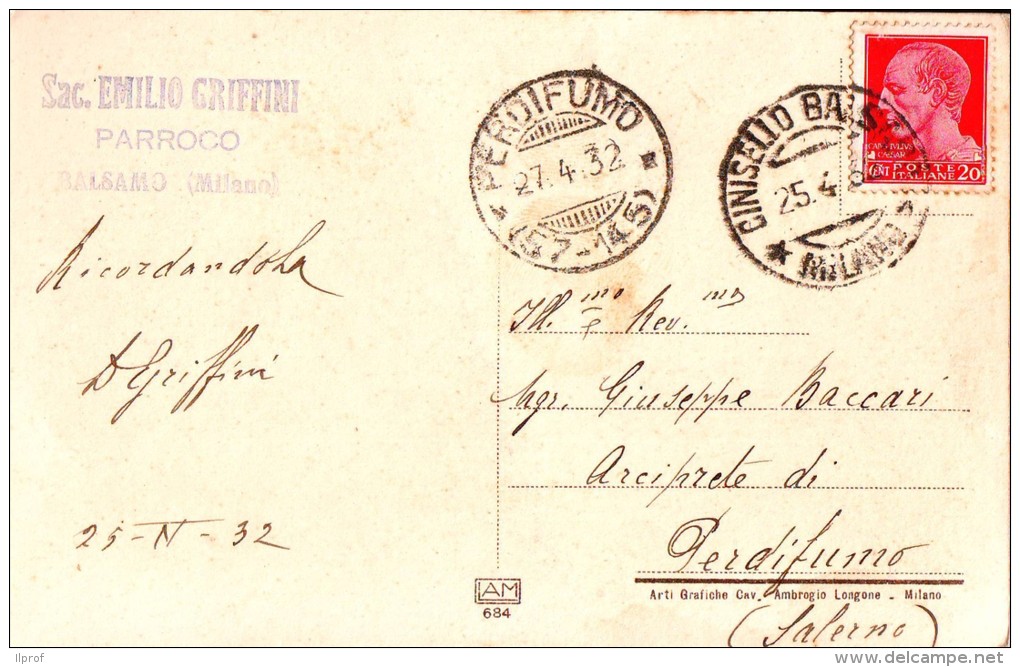 Sac. EMILIO GRIFFINI
PARROCO
BALSAMO (Milano)
Ricordandola
D Griffini
25-IV-32
PERDIFUMO
27.4.32
(57-145)
CINISELLO BALSAMO
25.4.32
MILANO
CAIVS IVLIVS
CAESAR
CENT POSTE ITALIANE 20
Ill.mo e Rev.mo
Mgr. Giuseppe Baccari
Arciprete di
Perdifumo
(Salerno)
Arti Grafiche Cav. Ambrogio Longone - Milano
LAM
684
Ilprof
delcampe.net